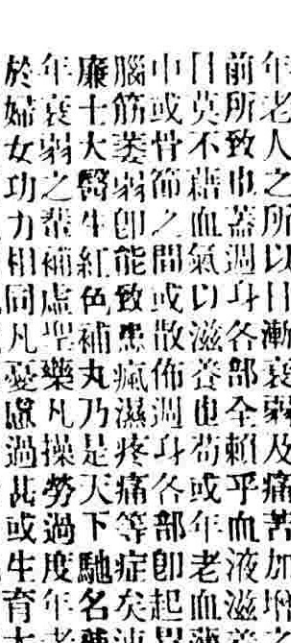 年老人之所以日漸衰弱及痛苦加增
前所致也蓋週身各部全賴乎血液滋
日莫不藉血氣以滋養也苟或年老血
中或骨節之間或散佈週身各部即起
腦筋萎弱即能致患瘋濕疼痛等症矣
廉士大醫生紅色補丸乃是天下馳名
年衰弱之輩補虛聖藥凡操勞過度年
於婦女功力相同凡憂慮過甚或生育